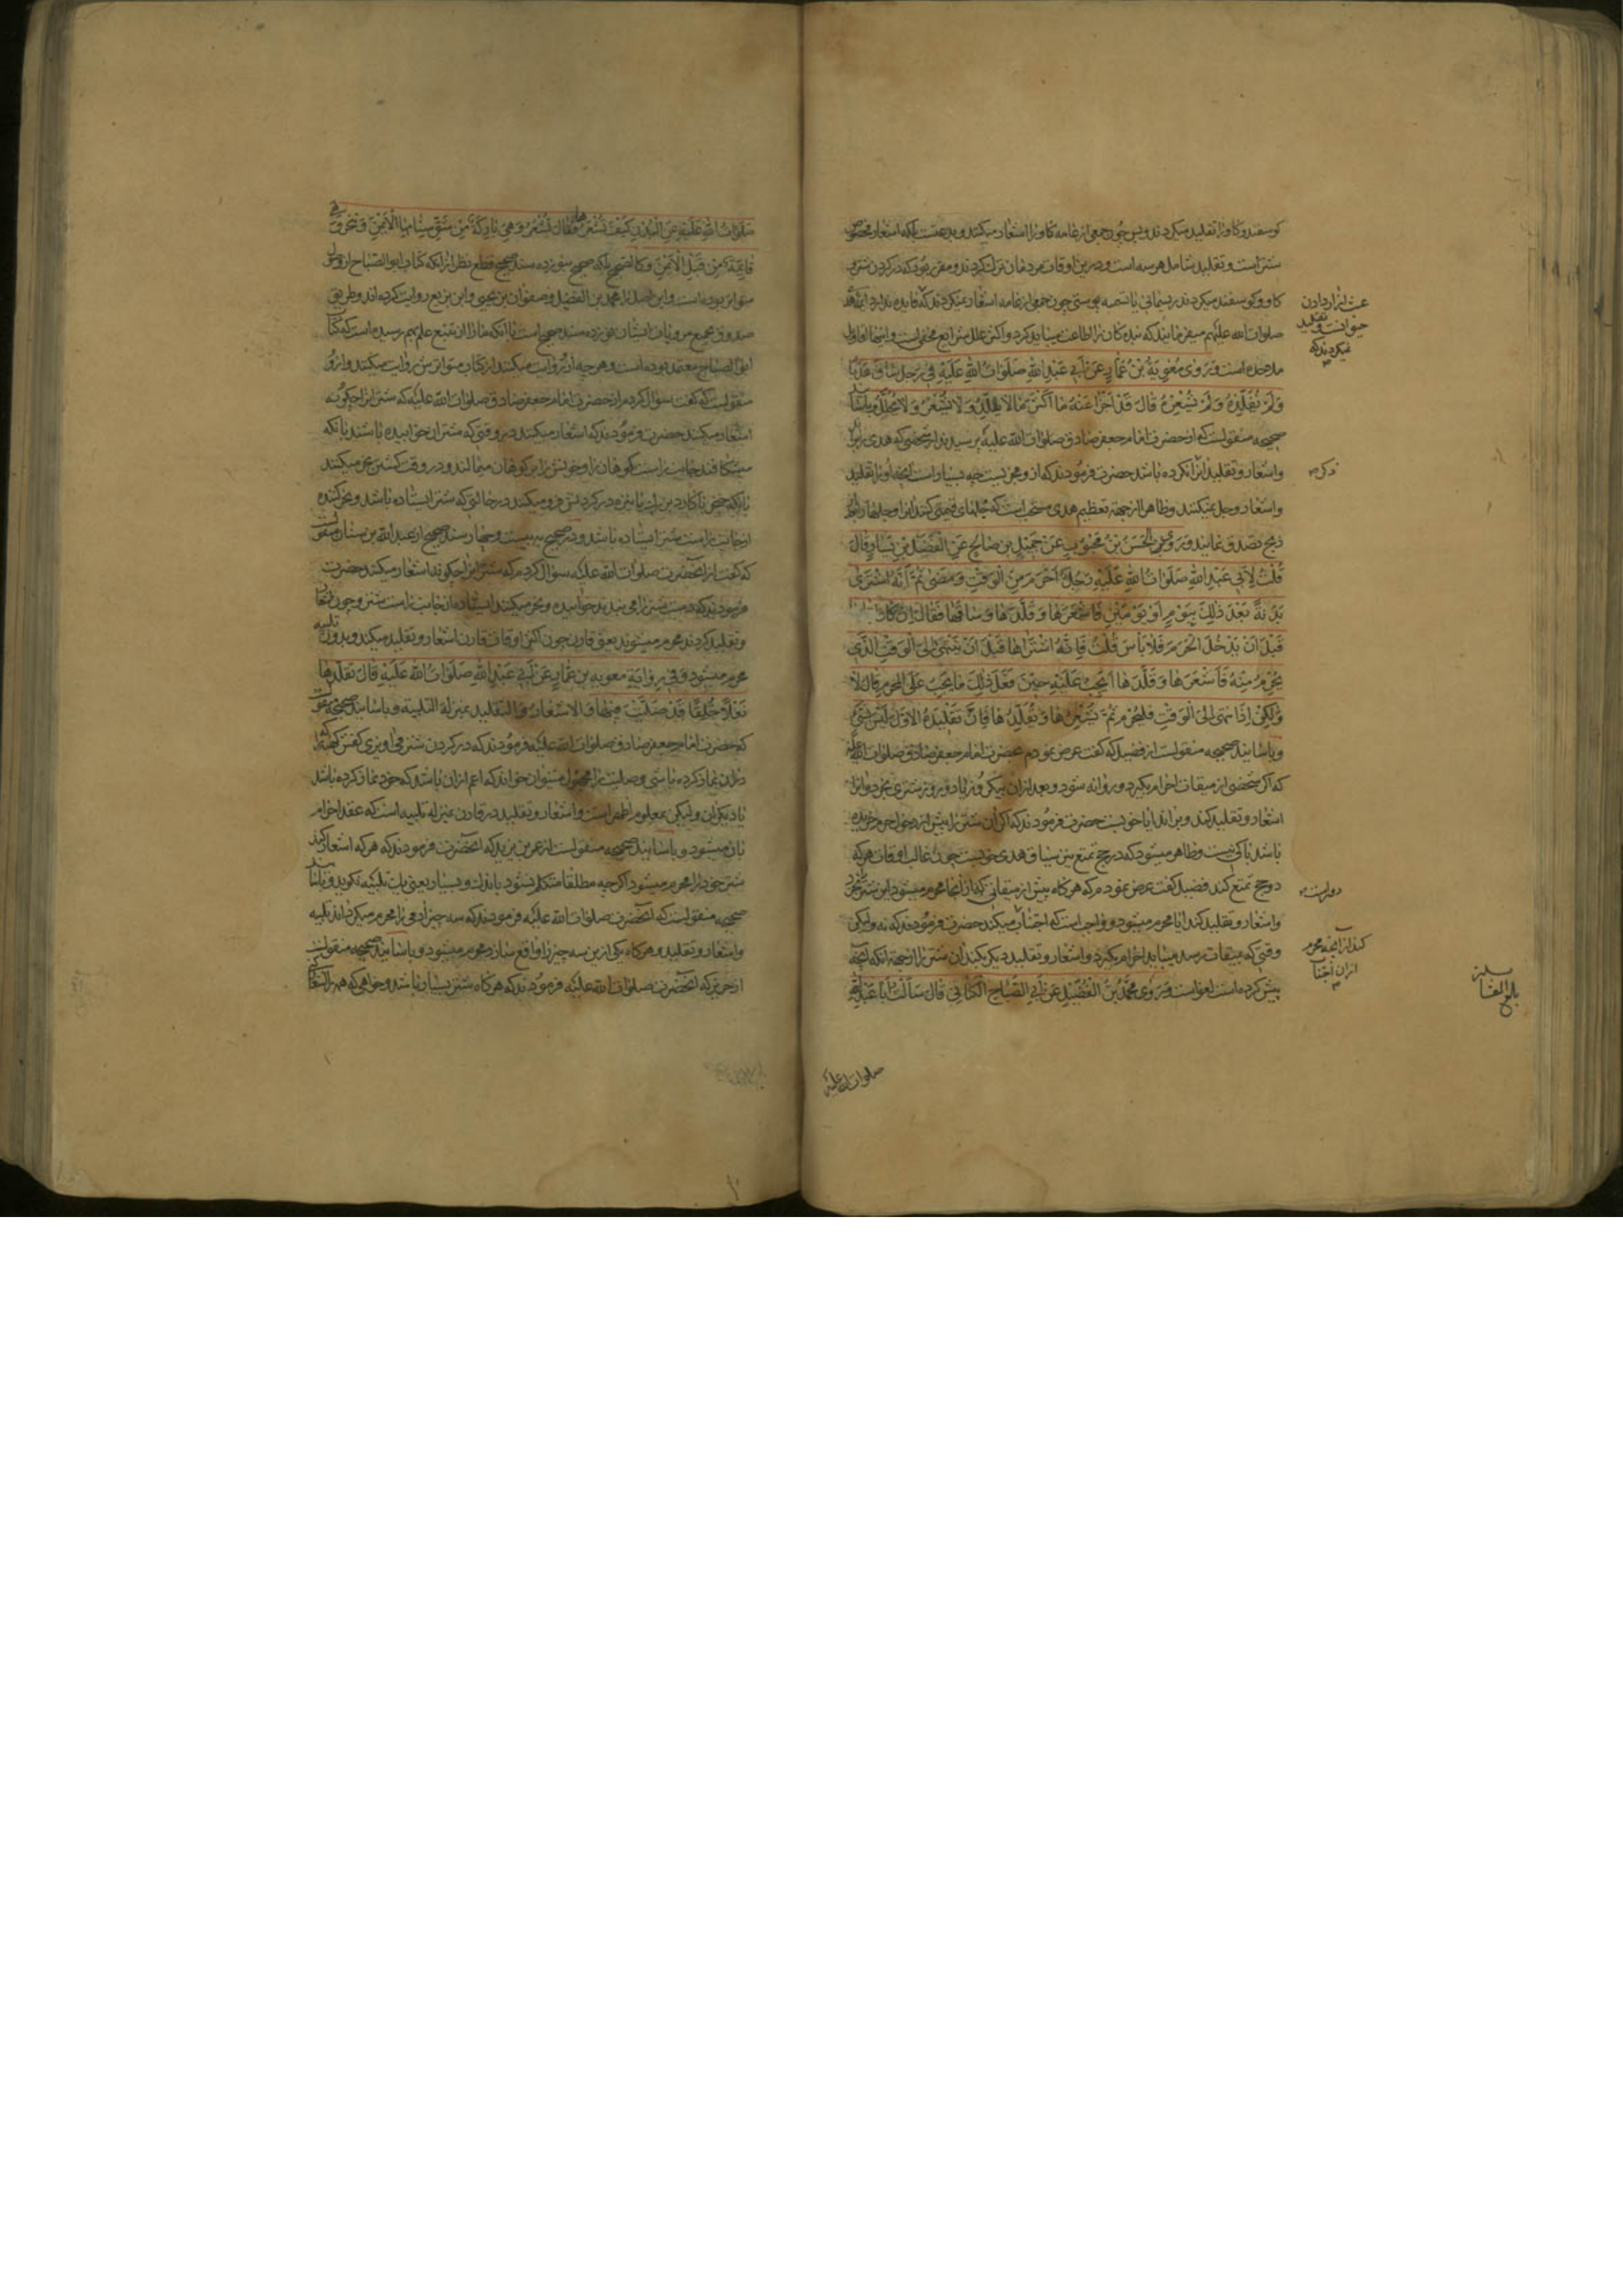 کوسفند و کاو را تقلید میکردند و پس چون جمعی از عامه کاو را اشعار میکنند و بدعتست بلکه اشعار مخصوص
شتر است و تقلید شامل هر سه است و درین اوقات مردمان ترک کردند و مقرر بود که در کردن شتر و
کاو و کوسفند میکردند ریسمانی یا تسمه پوستی چون جمعی از عامه اشعار نمیکردند که فایده ندارد ائمه هدی
صلوات الله علیهم میفرمایند که بندکان را اطاعت میباید کرد و اکثر علل شرایع مخفی است و اینها اقاویل
ملاحده است وَ رَوٰی مُعٰوِیَةُ بْنُ عَمّٰارٍ عَنْ اَبی عَبْدِ اللهِ صَلَوٰاتُ اللهِ عَلَیْهِ فی رَجُلٍ سٰاقَ هَدْیًا
وَ لَمْ یُقَلِّدْهُ وَ لَمْ یُشْعِرْهُ قٰالَ قَدْ اَجْزَأَ عَنْهُ مٰا اَکْثَرَ مٰا لٰا یُقَلَّدُ وَ لٰا یُشْعَرُ وَ لٰا یُجَلَّلُ و باسانید
صحیحه منقولست که از حضرت امام جعفر صادق صلوات الله علیه پرسیدند از شخصی که هدی براند
و اشعار و تقلید آنرا نکرده باشد حضرت فرمودند که از و مجزیست چه بسیار است که او را تقلید
و اشعار و جل نمیکنند و ظاهرا از جهة تعظیم هدی مستحب است که جلهای قیمتی کنند آنرا و جلها را بعد از
ذبح تصدق نمایند وَ رَوَی الْحَسَنُ بْنُ مَحْبُوبٍ عَنْ جَمیلِ بْنِ صٰالِحٍ عَنِ الْفُضَیْلِ بْنِ یَسٰارٍ قٰالَ
قُلْتُ لِاَبی عَبْدِ اللهِ صَلَوٰاتُ اللهِ عَلَیْهِ رَجُلٌ اَحْرَمَ مِنَ الْوَقْتِ وَ مَضٰی ثُمَّ اَنَّهُ اشْتَرٰی
بَدَنَةً بَعْدَ ذٰلِکَ بِیَوْمٍ اَوْ یَوْمَیْنِ فَاَشْعَرَهٰا وَ قَلَّدَهٰا وَ سٰاقَهٰا فَقٰالَ اِنْ کٰانَ
قَبْلَ اَنْ یَدْخُلَ الْحَرَمَ فَلٰا بَأْسَ قُلْتُ فَاِنَّهُ اشْتَرٰاهٰا قَبْلَ اَنْ یَنْتَهِیَ اِلَی الْوَقْتِ الَّذی
یُحْرِمُ مِنْهُ فَاَشْعَرَهٰا وَ قَلَّدَهٰا اَیَجِبُ عَلَیْهِ حینَ فَعَلَ ذٰلِکَ مٰا یَجِبُ عَلَی الْمُحْرِمِ قٰالَ لٰا
وَ لٰکِنْ اِذَا انْتَهٰی اِلَی الْوَقْتِ فَلْیُحْرِمْ ثُمَّ یُشْعِرُهٰا وَ یُقَلِّدُهٰا فَاِنَّ تَقْلیدَهُ الْاَوَّلَ لَیْسَ بِشَیْءٍ
و باسانید صحیحه منقولست از فضیل که کفت عرض نمودم بحضرت امام جعفر صادق صلوات الله علیه
که اکر شخصی از میقات احرام بکیرد و روانه شود و بعد از آن بیکروز یا دو روز شتری بخرد و آنرا
اشعار و تقلید کند و براند ایا خوبست حضرت فرمودند که اکر آن شتر را پیش از دخول حرم خریده
باشد باکی نیست و ظاهر میشود که در حج تمتع نیز سیاق هدی خوبست چون غالب اوقات هر که
دو حج تمتع کند فضیل کفت عرض نمودم که هر کاه پیش از میقاتی که از آنجا محرم میشود این شتر بخرد
و اشعار و تقلید کند ایا محرم میشود و واجب است که اجتناب میکند حضرت فرمودند که نه ولیکن
وقتی که بمیقات رسد میباید احرام بکیرد و اشعار و تقلید دیکر بکند آن شتر را از جهة انکه آنچه
پیش کرده است لغو است وَ رَوٰی مُحَمَّدُ بْنُ الْفُضَیْلِ عَنْ اَبی الصَّبّٰاحِ الْکَنٰانی قٰالَ سَأَلْتُ اَبٰا عَبْدِ اللهِ
حیوانست و تقلید
نمیکردند که
ذکر
کند از آنچه محرم
از آن اجتناب
صلوات الله علیه
صَلَوٰاتُ اللهِ عَلَیْهِ عَنِ الْبُدْنِ کَیْفَ تُشْعَرُهٰا فَقٰالَ تُشْعَرُ وَ هِیَ بٰارِکَةٌ مِنْ شِقِّ سَنٰامِهَا الْاَیْمَنِ وَ تُنْحَرُ وَ هِیَ
قٰائِمَةٌ مِنْ قِبَلِ الْاَیْمَنِ و کالصحیح بلکه صحیح بنوزده سند صحیح قطع نظر از انکه کتاب ابو الصباح از اصول
متواتر بوده است و این اصل را محمد بن الفضیل و صفوان بن یحیی و ابن بزیع روایت کرده اند و طریق
صدوق بجمیع مرویات ایشان نوزده سند صحیح است با آنکه ما را از تتبع علم بهم رسیده است که کتاب
ابو الصباح معتمد بوده است و هر چه از و روایت میکنند از کتاب متواترش روایت میکنند و از و
منقولست که کفت سؤال کردم از حضرت امام جعفر صادق صلوات الله علیه که شتر را چکونه
اشعار میکنند حضرت فرمودند که اشعار میکنند در وقتی که شتر را خوابیده باشند بانکه
میشکافند جانب راست کوهان را و خونش را بر کوهان میمالند و در وقت کشتن نحر میکنند
بانکه خنجر یا کارد بزرک یا نیزه در کردنش فرو میکنند در حالتی که شتر ایستاده باشد و نحر کننده
از جانب راست شتر ایستاده باشد و در صحیح به بیست و چهار سند صحیح از عبد الله بن سنان منقولست
که کفت از آنحضرت صلوات الله علیه سؤال کردم که شتر را چکونه اشعار میکنند حضرت
فرمودند که دست شتر را می بندند خوابیده و نحر میکنند ایستاده از جانب راست شتر و چون اشعار
و تقلید کردند محرم میشوند یعنی قارن چون اکثر اوقات قارن اشعار و تقلید میکند و بدون تلبیه
محرم میشود وَ فی رِوٰایَةِ معویة بن عَمّٰارٍ عَنْ اَبی عَبْدِ اللهِ صَلَوٰاتُ اللهِ عَلَیْهِ قٰالَ تُقَلِّدُهٰا
نَعْلًا خَلَقًا قَدْ صَلَّیْتَ فیهٰا وَ الْاِشْعٰارُ وَ التَّقْلیدُ بِمَنْزِلَةِ التَّلْبِیَةِ و باسانید صحیحه منقولست
که حضرت امام جعفر صادق صلوات الله علیه فرمودند که در کردن شتر می آویزی کفش کهنه را که
در آن نماز کرده باشی و صلیت را مجهول میتوان خواند که اعم از آن باشد که خود نماز کرده باشد
یا دیکران ولیکن بمعلوم اظهر است و اشعار و تقلید در قارن بمنزله تلبیه است که عقد احرام
بآن میشود و باسانید صحیحه منقولست از عمر بن یزید که آنحضرت فرمودند که هر که اشعار کند
شتر خود را محرم میشود اکر چه مطلقا متکلم نشود باندک و بسیار یعنی یک تلبیه نکوید و باسانید
صحیحه منقولست که آنحضرت صلوات الله علیه فرمودند که سه چیز آدمی را محرم میکرداند تلبیه
و اشعار و تقلید و هر کاه یکی ازین سه چیز را واقع سازد محرم میشود و باسانید صحیحه منقولست
از حریز که آنحضرت صلوات الله علیه فرمودند که هر کاه شتر بسیار باشد و خواهی که همه را اشعار کنی